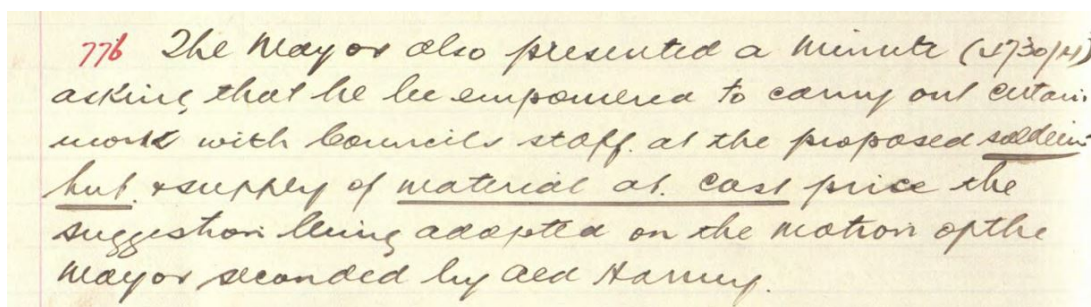 776 The Mayor also presented a minute (1730/14)
asking that he be empowered to carry out certain
work with Councils staff. at the proposed soldiers
hut. & supply of material at. cost price the
suggestion being adopted on the motion of the
Mayor seconded by Ald Harvey.